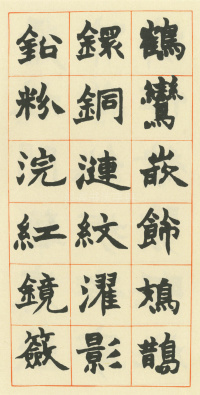 鶴鸞嵌飾鴆鵲
鐶銅漣紋濯影
鉛粉浣紅鏡簽